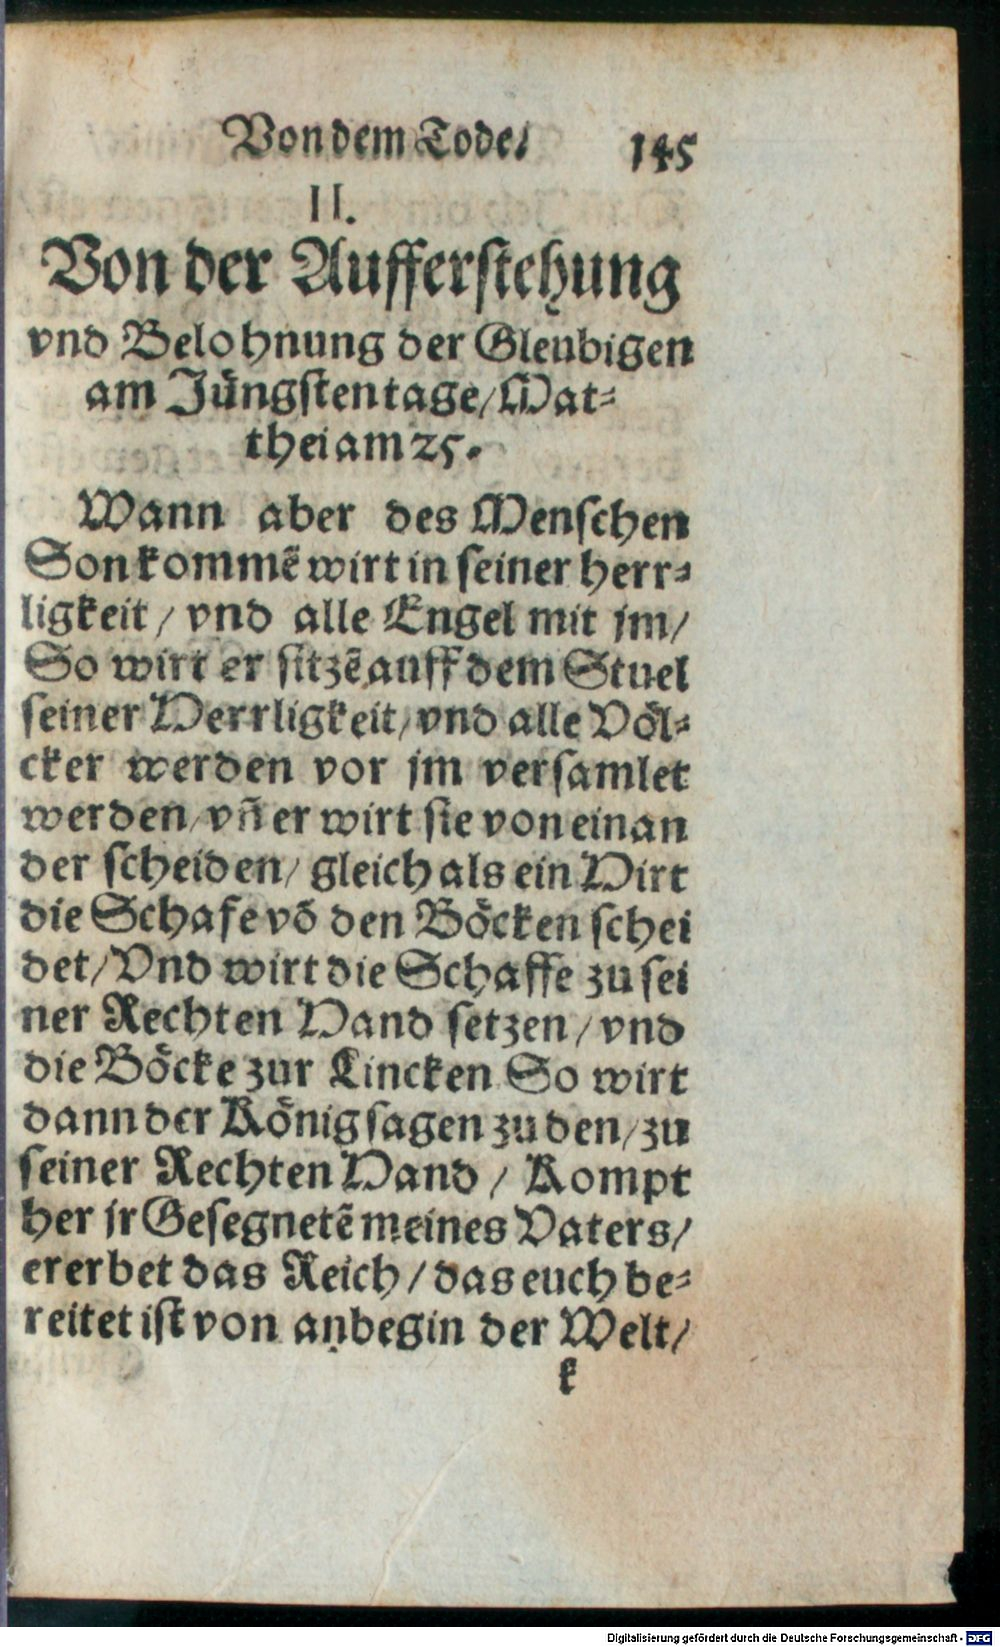 Von dem Tode/ 145
II.
Von der Aufferstehung
vnd Belohnung der Gleubigen
am Jüngsten tage/ Mat-
thei am 25.
Wann aber des Menschen
Son kommē wirt in seiner herr-
ligkeit / vnd alle Engel mit jm/
So wirt er sitzē auff dem Stuel
seiner Herrligkeit/ vnd alle Völ-
cker werden vor jm versamlet
werden/ vñ er wirt sie von einan
der scheiden/ gleich als ein Hirt
die Schafe võ den Böcken schei
det/ Vnd wirt die Schaffe zu sei
ner Rechten Hand setzen / vnd
die Böcke zur Lincken So wirt
dann der König sagen zu den/ zu
seiner Rechten Hand / Kompt
her jr Gesegnetē meines Vaters/
ererbet das Reich / das euch be-
reitet ist von anbegin der Welt/
k
Digitalisierung gefördert durch die Deutsche Forschungsgemeinschaft - DFG